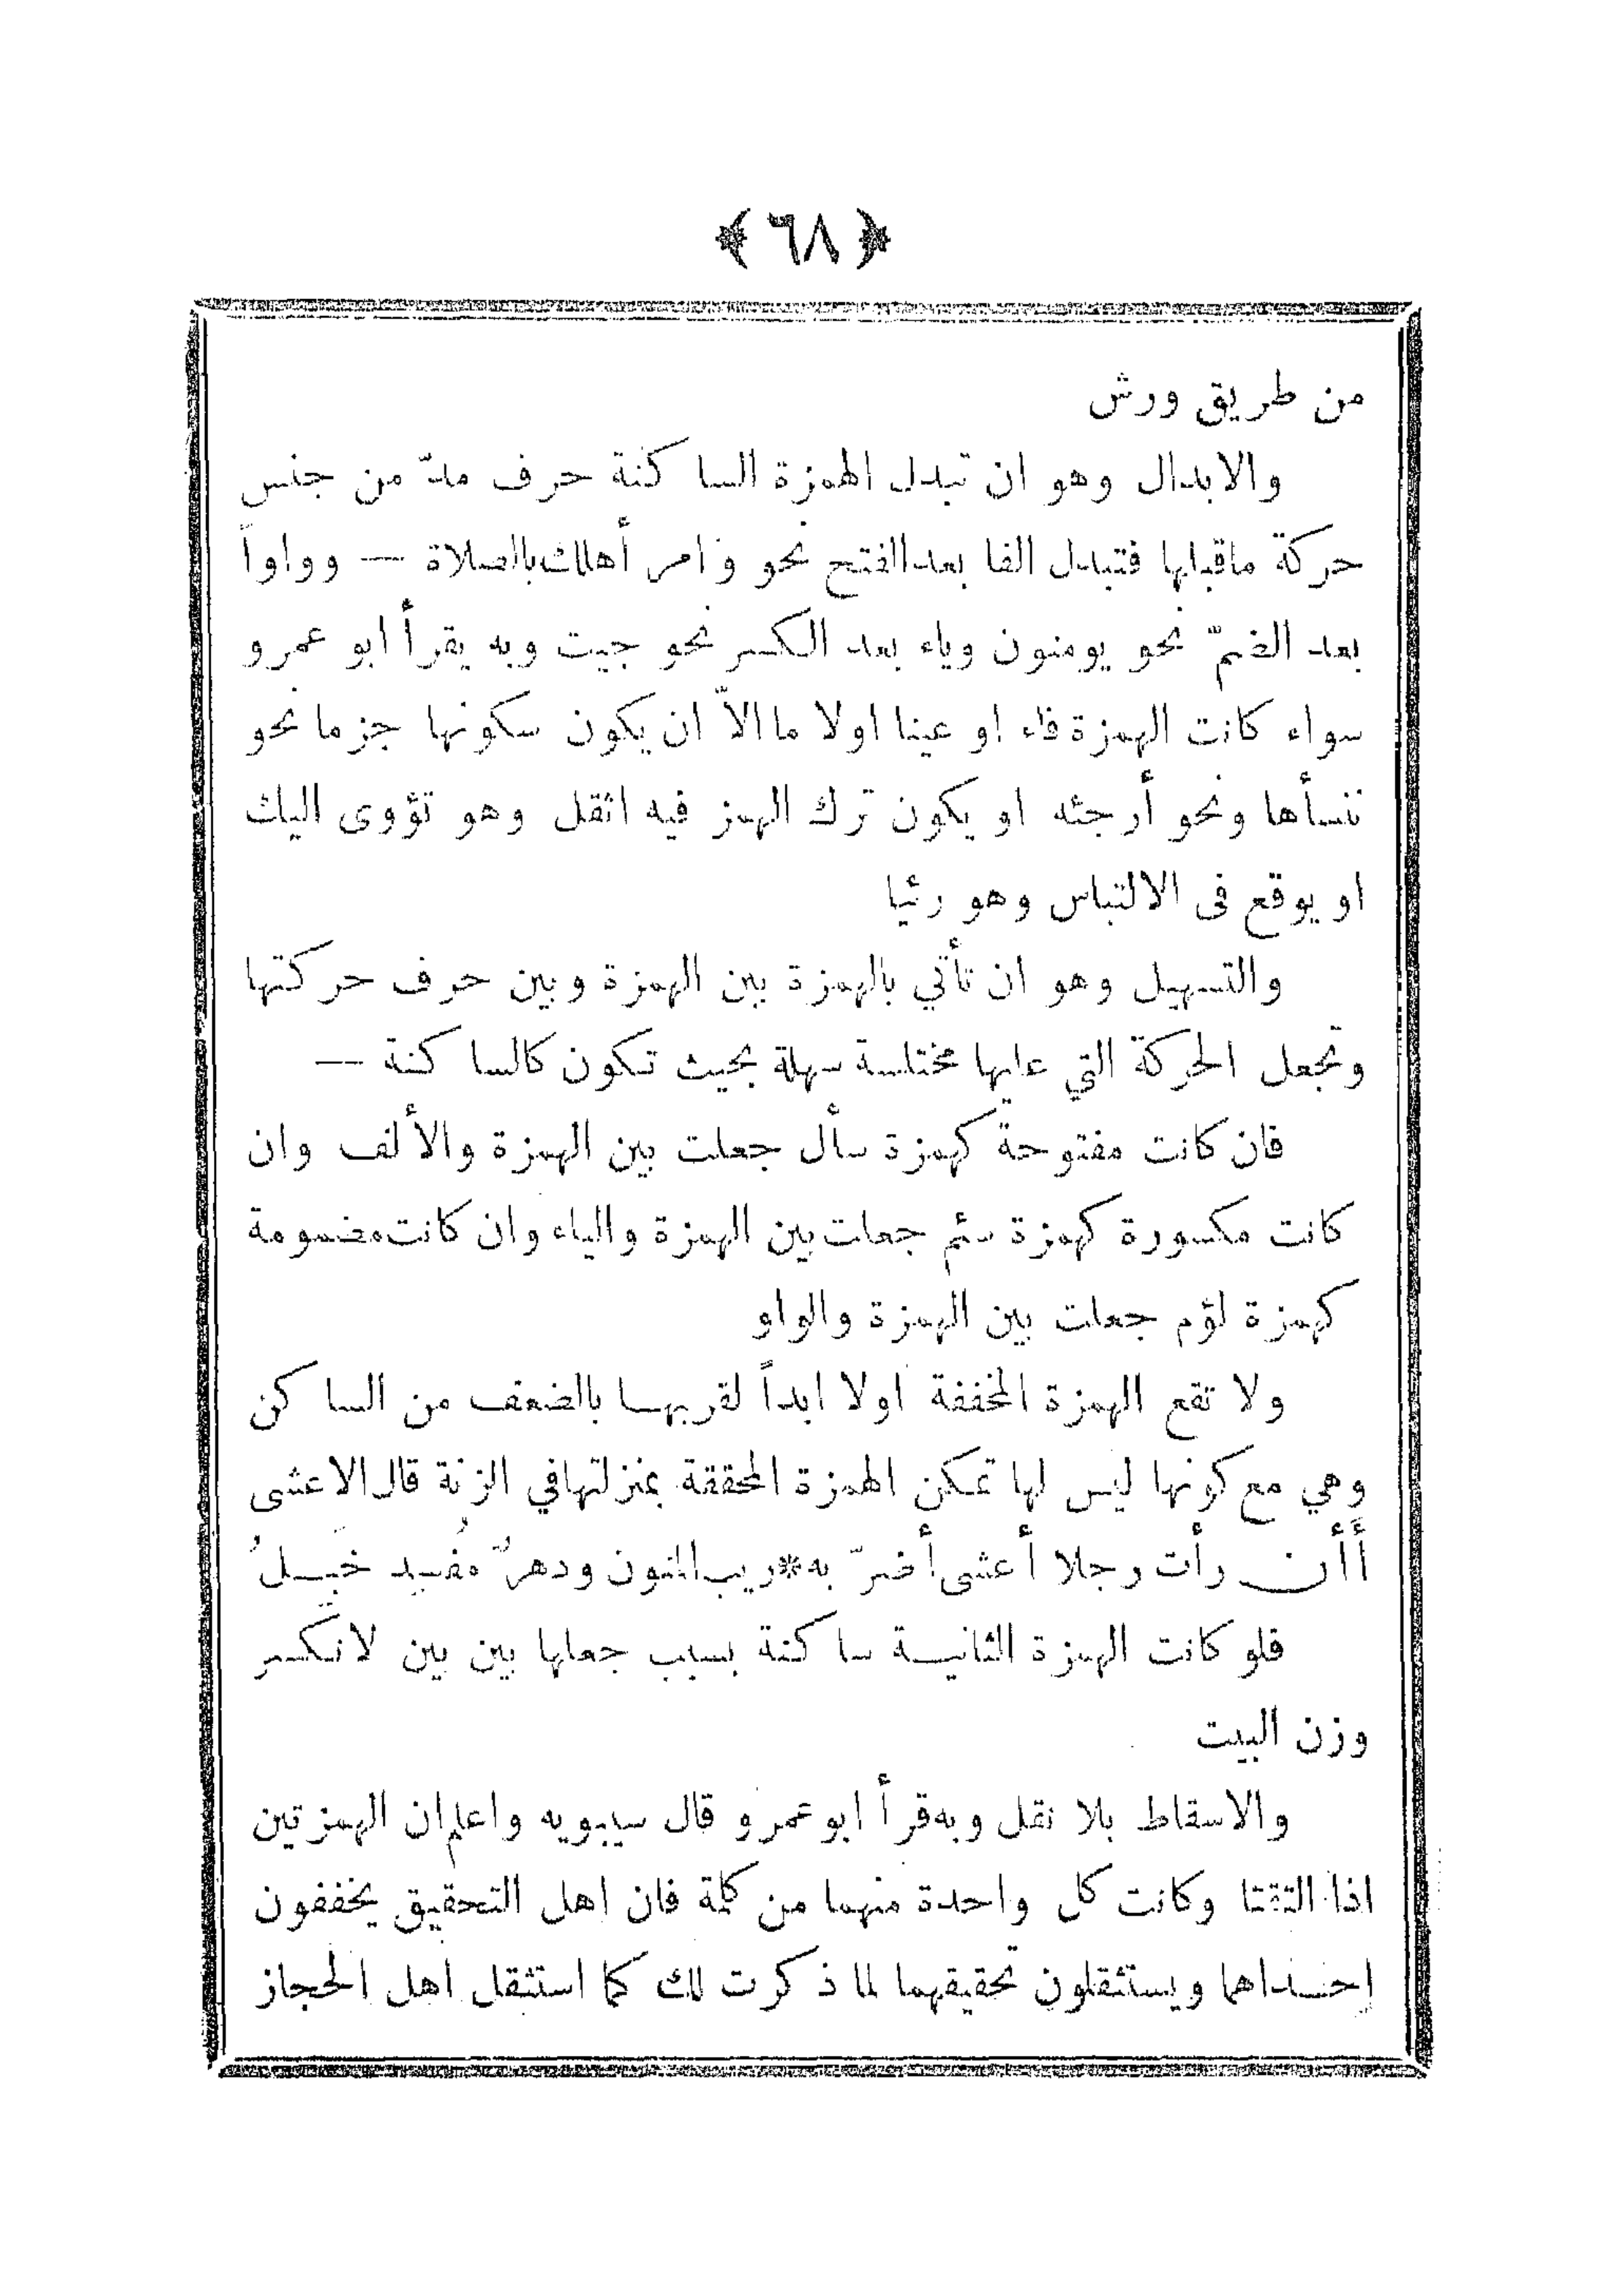 ﴿ ٦٨ ﴾
من طريق ورش
والابدال وهو ان تبدل الهمزة الساكنة حرف مدّ من جنس
حركة ماقبلها فتبدل الفا بعد الفتح نحو وامر أهلك بالصلاة — وواواً
بعد الضمّ نحو يومنون وياء بعد الكسر نحو جيت وبه يقرأ ابو عمرو
سواء كانت الهمزة فاء او عينا اولا ما الاّ ان يكون سكونها جزما نحو
ننسأها ونحو أرجئه او يكون ترك الهمز فيه اثقل وهو تؤوى اليك
او يوقع فى الالتباس وهو رئيا
والتسهيل وهو ان تأتي بالهمزة بين الهمزة وبين حرف حركتها
وتجعل الحركة التي عليها مختلسة سهلة بحيث تكون كالساكنة —
فان كانت مفتوحة كهمزة سأل جعلت بين الهمزة والألف وان
كانت مكسورة كهمزة سئم جعلت بين الهمزة والياء وان كانت مضمومة
كهمزة لؤم جعلت بين الهمزة والواو
ولا تقع الهمزة المخففة اولا ابداً لقربها بالضعف من الساكن
وهي مع كونها ليس لها تمكن الهمزة المحققة بمنزلتها في الزنة قال الاعشى
أَأَن رأت رجلا أعشى أضرّ به*ريب المنون ودهرٌ مُفيد خَبِلُ
فلو كانت الهمزة الثانية ساكنة بسبب جعلها بين بين لانكسر
وزن البيت
والاسقاط بلا نقل وبه قرأ ابو عمرو قال سيبويه واعلم ان الهمزتين
اذا التقتا وكانت كل واحدة منهما من كلمة فان اهل التحقيق يخففون
إحداهما ويستثقلون تحقيقهما لما ذكرت لك كما استثقل اهل الحجاز